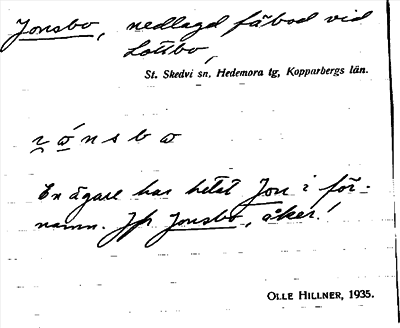 Jonsbo, nedlagd fäbod vid
Lottsbo,
St. Skedvi sn, Hedemora tg, Kopparbergs län.
En ägare har hetat Jon i för-
namn. Jfr Jonsbo, åker!
OLLE HILLNER, 1935.